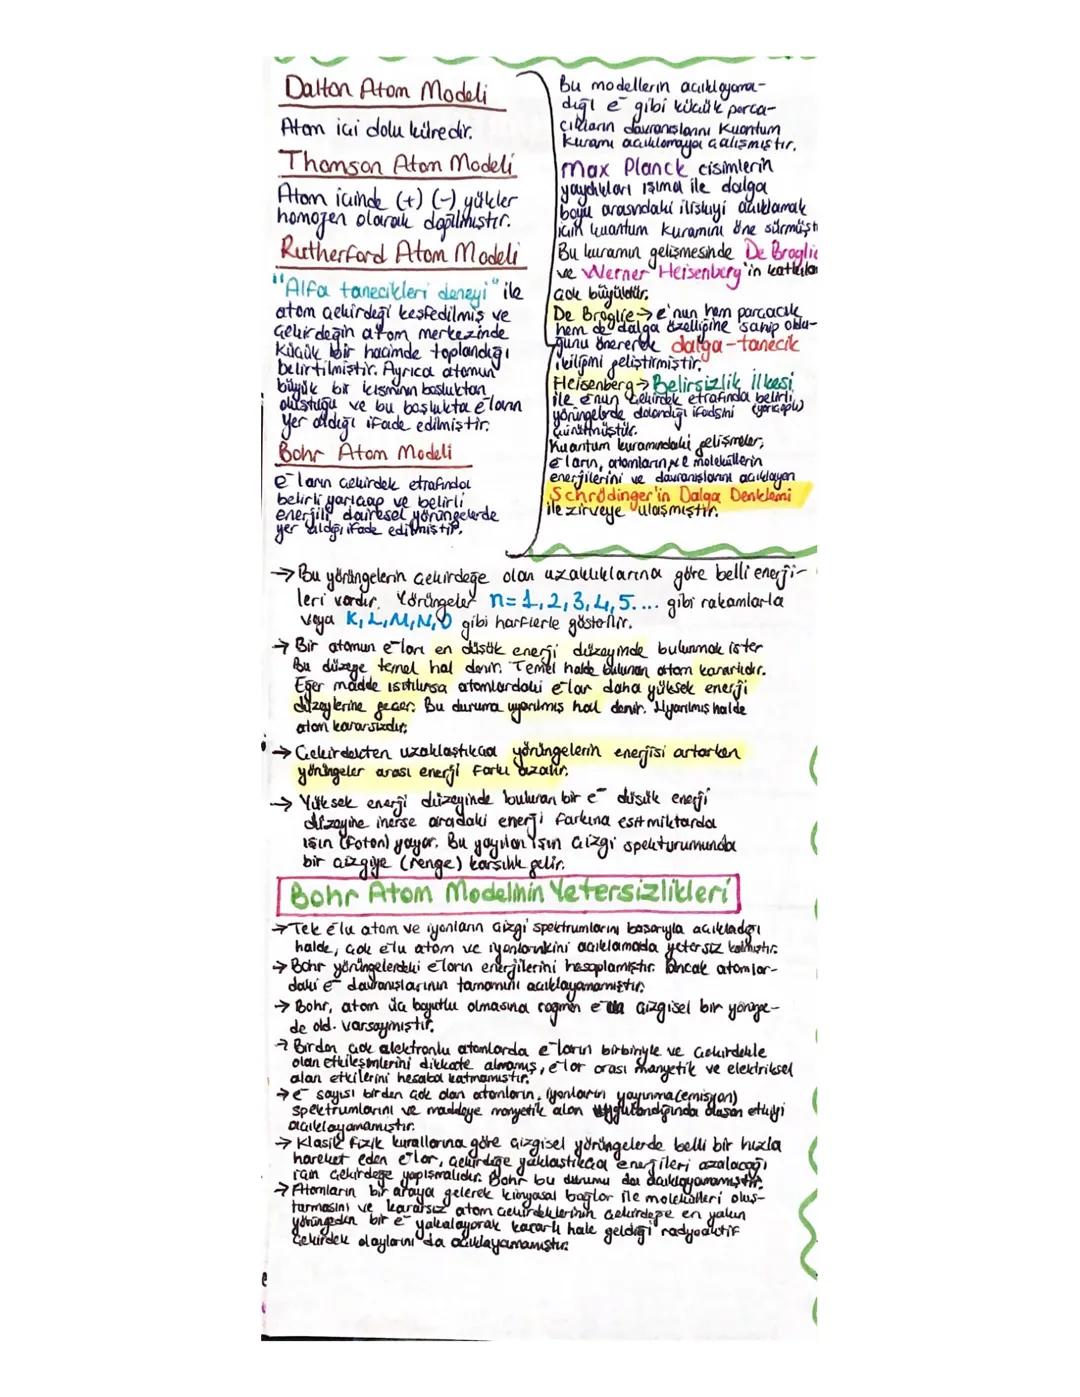 Dalton Atom Modeli
Atom içi dolu küredir.
Thomson Atom Modeli
Atom içinde (+) (-) yükler
homojen olarak dağılmıştır.
Rutherford Atom Modeli
"Alfa tanecikleri deneyi" ile
atom çekirdeği keşfedilmiş ve
çekirdeğin atom merkezinde
küçük bir hacimde toplandığı
belirtilmiştir. Ayrıca atomun
büyük bir kısmının boşluktan
oluştuğu ve bu boşlukta e⁻ların
yer aldığı ifade edilmiştir.
Bohr Atom Modeli
e⁻ların çekirdek etrafında
belirli yarıçap ve belirli
enerjili dairesel yörüngelerde
yer aldığı ifade edilmiştir.
Bu modellerin açıklayama-
dığı e⁻ gibi küçük parça-
cıkların davranışlarını Kuantum
Kuramı açıklamaya çalışmıştır.
Max Planck cisimlerin
yaydıkları ışıma ile dalga
boyu arasındaki ilişkiyi açıklamak
için kuantum kuramını öne sürmüşt
Bu kuramın gelişmesinde De Broglie
ve Werner Heisenberg'in katkıları
çok büyüktür.
De Broglie → e⁻nun hem parçacık
hem de dalga özelliğine sahip oldu-
ğunu önererek dalga-tanecik
ikiliğini geliştirmiştir.
Heisenberg → Belirsizlik İlkesi
ile e⁻nun çekirdek etrafında belirli
yörüngelerde dolandığı ifadesini (yarıçaplı)
çürütmüştür.
Kuantum kuramındaki gelişmeler;
e⁻ların, atomların ve moleküllerin
enerjilerini ve davranışlarını açıklayan
Schrödinger'in Dalga Denklemi
ile zirveye ulaşmıştır.
→ Bu yörüngelerin çekirdeğe olan uzaklıklarına göre belli enerji-
leri vardır. Yörüngeler n=1,2,3,4,5.... gibi rakamlarla
veya K,L,M,N,O gibi harflerle gösterilir.
→ Bir atomun e⁻ları en düşük enerji düzeyinde bulunmak ister
Bu düzeye temel hal denir. Temel halde bulunan atom kararlıdır.
Eğer madde ısıtılırsa atomlardaki e⁻lar daha yüksek enerji
düzeylerine geçer. Bu duruma uyarılmış hal denir. Uyarılmış halde
atom kararsızdır.
→ Çekirdekten uzaklaştıkça yörüngelerin enerjisi artarken
yörüngeler arası enerji farkı azalır.
→ Yüksek enerji düzeyinde bulunan bir e⁻ düşük enerji
düzeyine inerse aradaki enerji farkına eşit miktarda
ışın (foton) yayar. Bu yayılan ışın çizgi spekturumunda
bir çizgiye (renge) karşılık gelir.
Bohr Atom Modelinin Yetersizlikleri
→ Tek e⁻lu atom ve iyonların çizgi spektrumlarını başarıyla açıkladığı
halde, çok e⁻lu atom ve iyonlarınkini açıklamada yetersiz kalmıştır.
→ Bohr yörüngelerdeki e⁻ların enerjilerini hesaplamıştır. Ancak atomlar-
daki e⁻ davranışlarının tamamını açıklayamamıştır.
→ Bohr, atom üç boyutlu olmasına rağmen e⁻ çizgisel bir yörünge-
de old. varsaymıştır.
→ Birden çok elektronlu atomlarda e⁻ların birbiriyle ve çekirdekle
olan etkileşimlerini dikkate almamış, e⁻lar arası manyetik ve elektriksel
alan etkilerini hesaba katmamıştır.
→ e⁻ sayısı birden çok olan atomların, iyonların yayınma (emisyon)
spektrumlarını ve maddeye manyetik alan uygulandığında oluşan etkiyi
açıklayamamıştır.
→ Klasik fizik kurallarına göre çizgisel yörüngelerde belli bir hızla
hareket eden e⁻lar, çekirdeğe yaklaştıkça enerjileri azalacağı
için çekirdeğe yapışmalıdır. Bohr bu durumu da açıklayamamıştır.
→ Atomların bir araya gelerek kimyasal bağlar ile molekülleri oluş-
turmasını ve kararsız atom çekirdeklerinin çekirdeğe en yakın
yörüngeden bir e⁻ yakalayarak kararlı hale geldiği radyoaktif
çekirdek olaylarını da açıklayamamıştır.